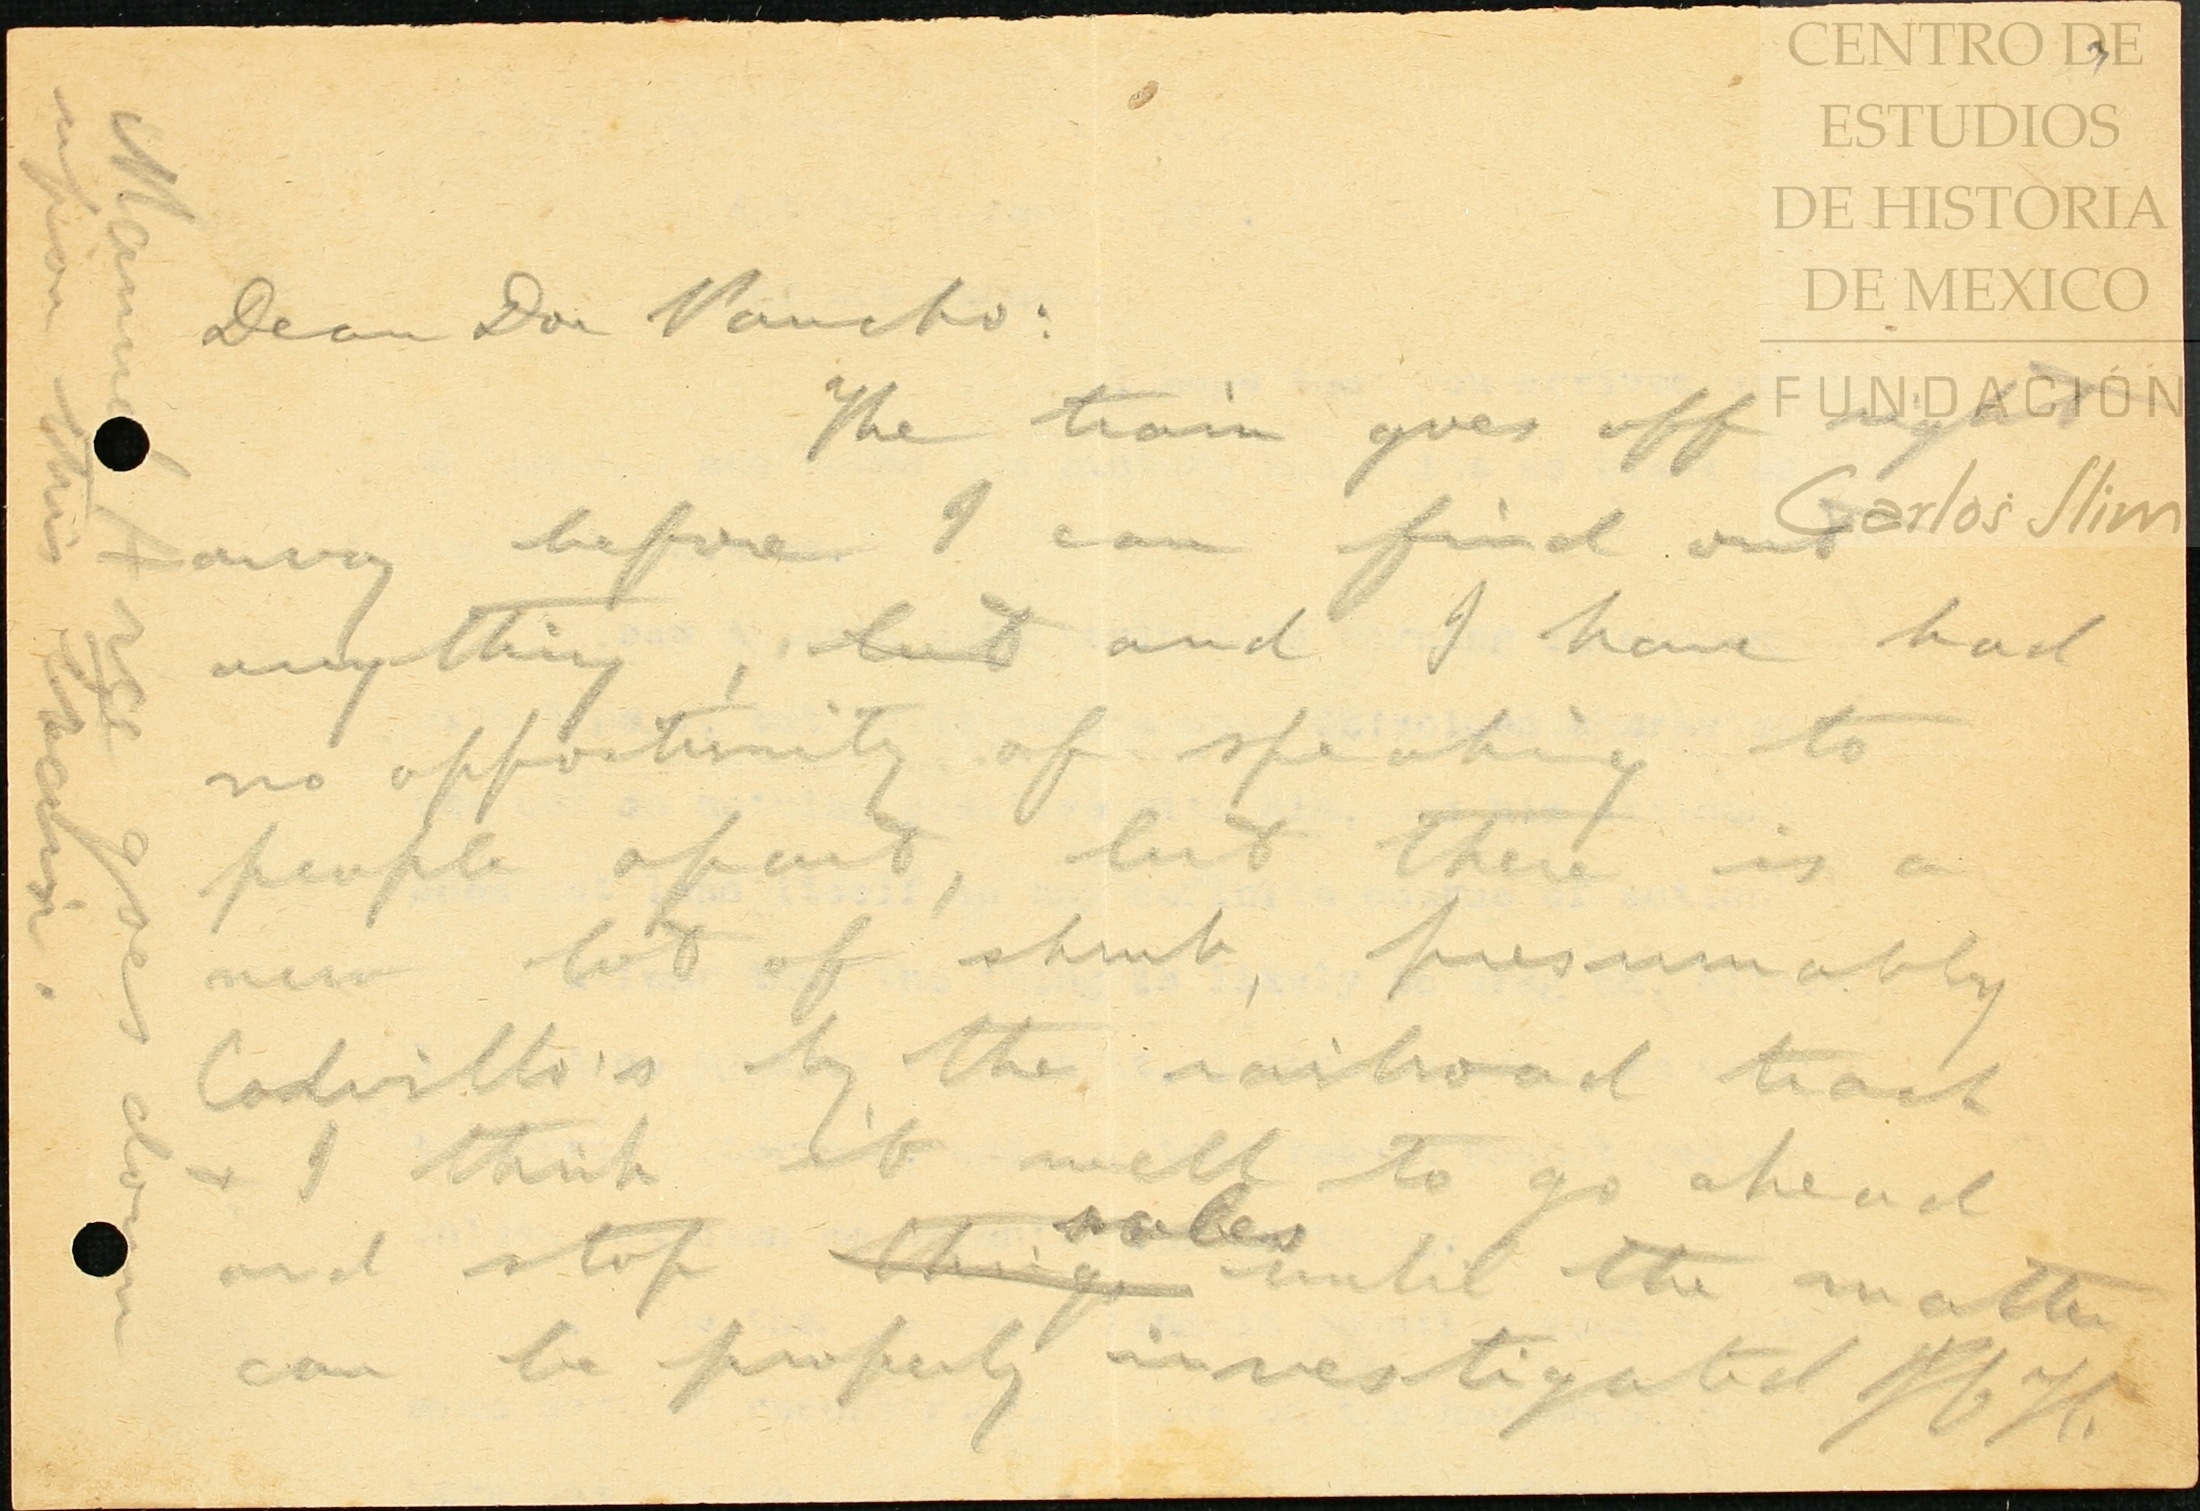 Dear Don Pancho:
The train goes off right
away before I can find out
anything, but and I have had
no opportunity of speaking to
people apart, but there is a
new lot of shrub, presumably
by the railroad track
+ I think it well to go ahead
and stop things sales until the matter
can be properly investigated
Manuel F. goes down
upon this train.
CENTRO DE
ESTUDIOS
DE HISTORIA
DE MEXICO
FUNDACIÓN
Carlos Slim